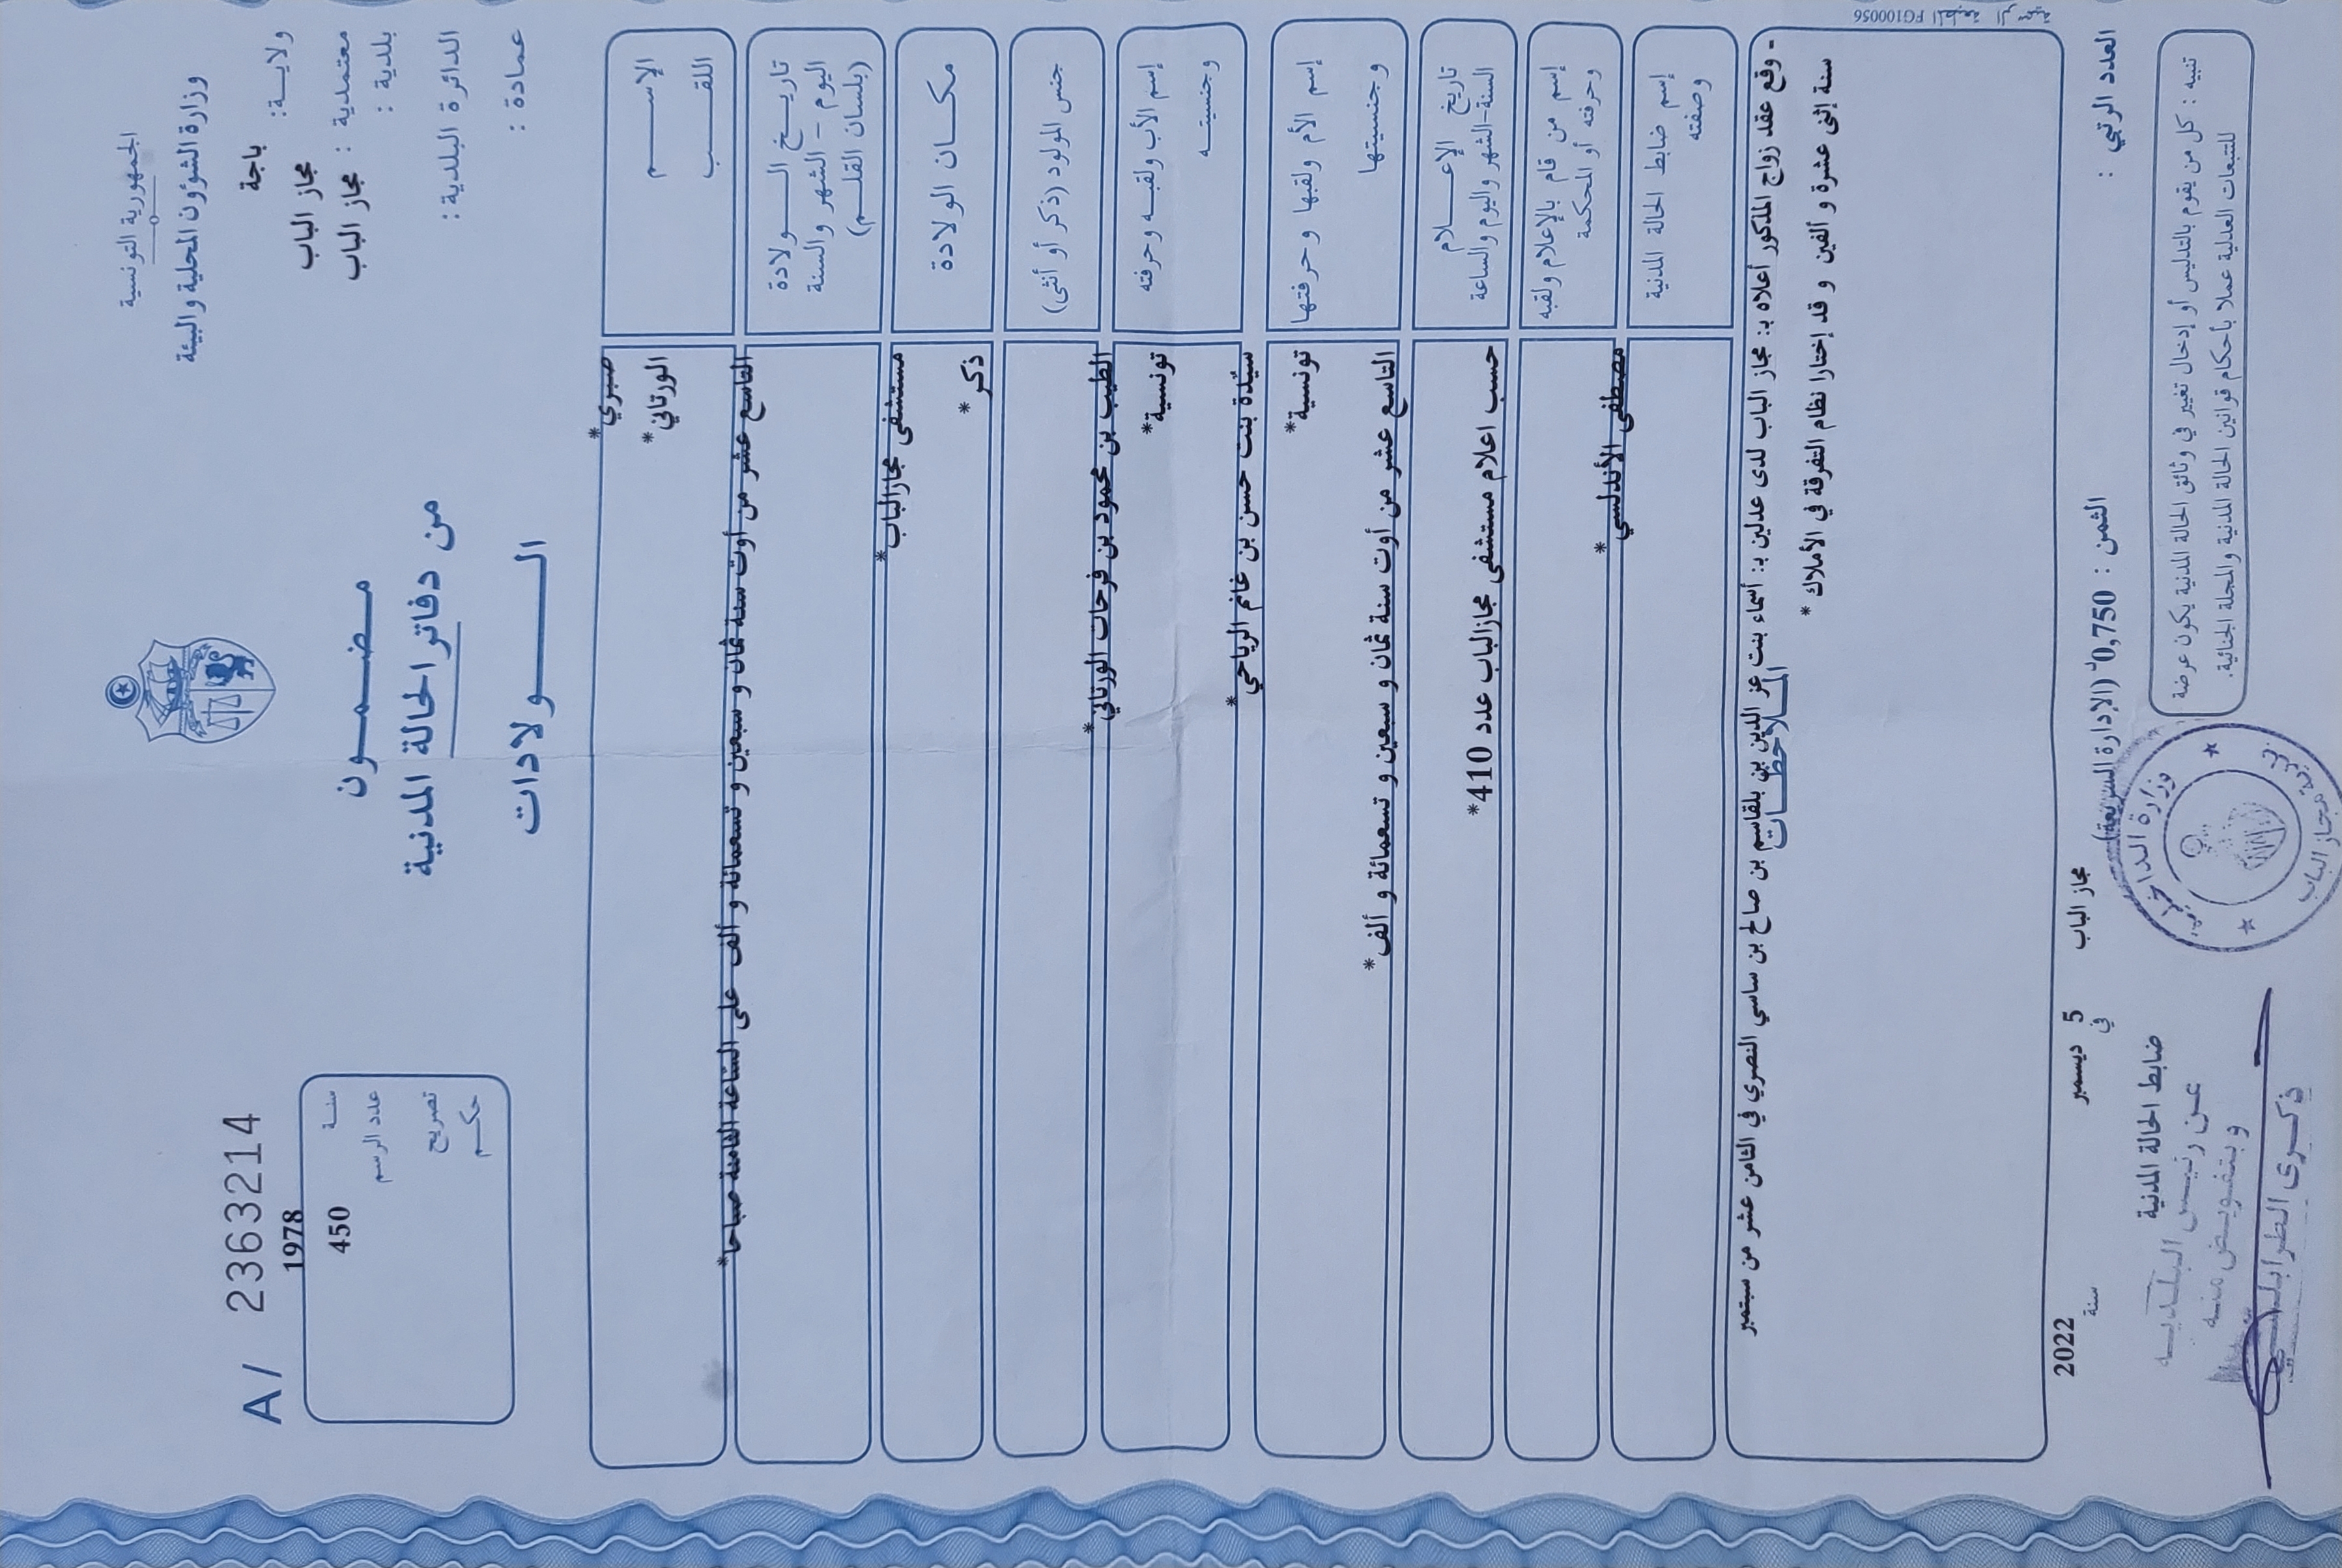 الجمهورية التونسية
وزارة الشؤون المحلية والبيئة
ولاية: باجة
معتمدية : مجاز الباب
بلدية : مجاز الباب
الدائرة البلدية :
عمادة :
مضمون
من دفاتر الحالة المدنية
الولادات
A/ 2363214
سنة 1978
عدد الرسم 450
تصريح
حكم
الاسم صبري*
اللقب الورتاني*
تاريخ الولادة
اليوم - الشهر والسنة
(بلسان القلم)
التاسع عشر من أوت سنة ثمان و سبعين و تسعمائة و ألف على الساعة الثامنة صباحا*
مكان الولادة
مستشفى مجازالباب*
جنس المولود (ذكر أو أنثى)
ذكر*
إسم الأب ولقبه وحرفته
وجنسيته
الطيب بن محمود بن فرحات الورتاني*
تونسية*
إسم الأم ولقبها وحرفتها
وجنسيتها
سيّدة بنت حسن بن غانم الرياحي*
تونسية*
تاريخ الإعلام
السنة-الشهر واليوم والساعة
التاسع عشر من أوت سنة ثمان و سبعين و تسعمائة و ألف*
إسم من قام بالإعلام ولقبه
وحرفته أو المحكمة
حسب اعلام مستشفى مجازالباب عدد 410*
إسم ضابط الحالة المدنية
وصفته
مصطفى الأندلسي*
الملاحظات
- وقع عقد زواج المذكور أعلاه بـ: مجاز الباب لدى عدلين بـ: أسماء بنت عز الدين بن بلقاسم بن صالح بن ساسي النصري في الثامن عشر من سبتمبر
سنة إثنى عشرة و ألفين و قد إختارا نظام التفرقة في الأملاك *
المطبعة الرسمية FG100056
العدد الرتبي :
الثمن : 0,750 (الإدارة السريعة)
مجاز الباب في 5 ديسمبر سنة 2022
تنبيه : كل من يقوم بالتدليس أو إدخال تغيير في وثائق الحالة المدنية يكون عرضة
للتتبعات العدلية عملا بأحكام قوانين الحالة المدنية والمجلة الجنائية.
ضابط الحالة المدنية
عن رئيس البلدية
وبتفويض منه
ذكرى الطرابلسي
وزارة الداخلية
مجاز الباب